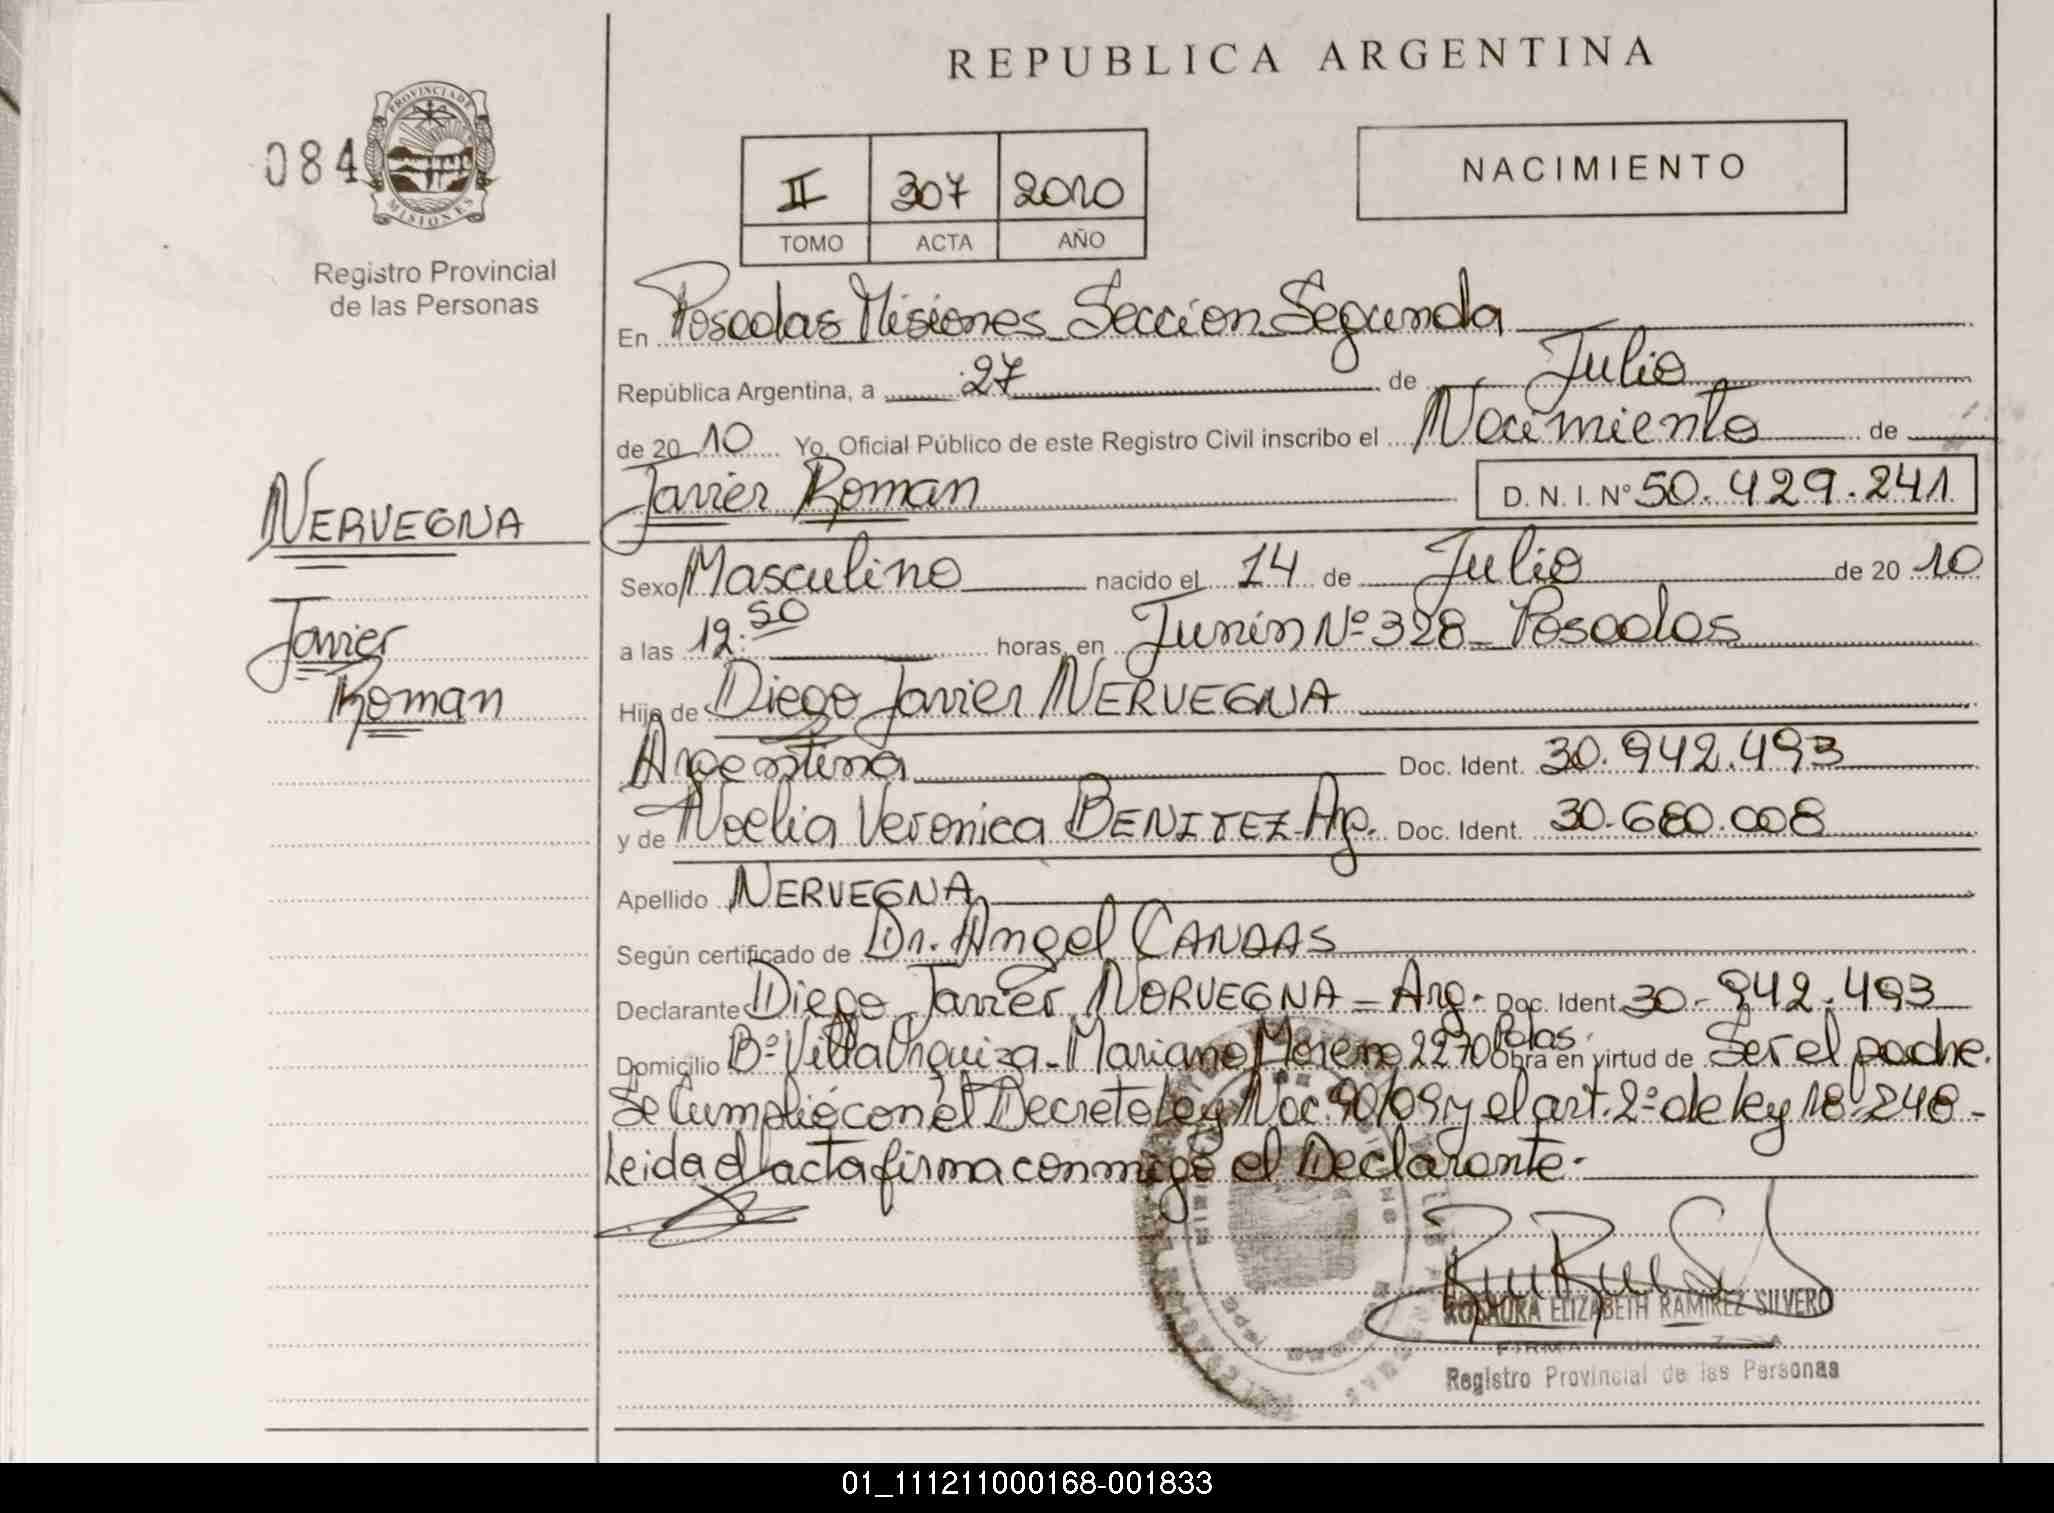 REPUBLICA ARGENTINA
084
PROVINCIA DE
MISIONES
Registro Provincial
de las Personas
II 307 2010
TOMO ACTA AÑO
NACIMIENTO
En Posadas Misiones Seccion Segunda
República Argentina, a 27 de Julio
de 2010 Yo, Oficial Público de este Registro Civil inscribo el Nacimiento de
Javier Roman D. N. I. Nº 50.429.241
NERVEGNA
Javier
Roman
Sexo Masculino nacido el 14 de Julio de 2010
a las 12:50 horas, en Junin Nº 328 - Posadas
Hijo de Diego Javier NERVEGNA
Argentina Doc. Ident. 30.942.493
y de Noelia Veronica BENITEZ Arg. Doc. Ident. 30.680.008
Apellido NERVEGNA
Según certificado de Dr. Angel CANDAS
Declarante Diego Javier NORVEGNA - Arg. Doc. Ident. 30.942.493
Domicilio Bº Villa Urquiza - Mariano Moreno 2270 Pdas. Obra en virtud de Ser el padre.
Se Cumplió con el Decreto Ley Nac. 90/09 y el art. 2º de ley 18.248 -
Leida el acta firma conmigo el Declarante.
ROSAURA ELIZABETH RAMIREZ SILVERO
Registro Provincial de las Personas
01_111211000168-001833